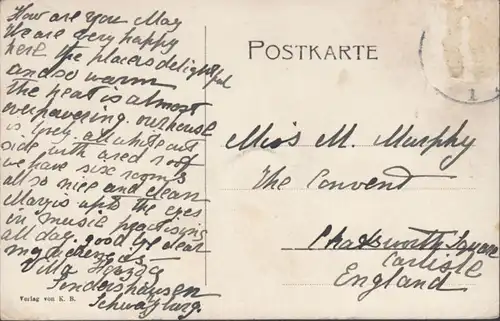 How are you May
We are very happy
here the place is delightful
and so warm
the heat is almost
overpowering. our house
is lovely. all white out
side with a red roof
we have six rooms
all so nice and clean
Mary is up to the eyes
in music practising
all day. good bye dear
Villa
Sondershausen
Schwarzburg.
Verlag von K. B.
POSTKARTE
1
Miss M. Murphy
The Convent
Chatsworth Square
Carlisle
England